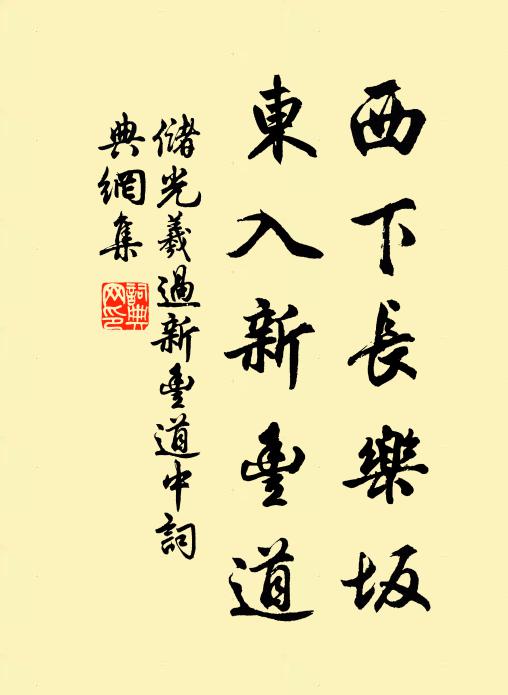 西下長樂坂
東入新豐道
儲光羲過新豐道中詞
典網集
詞典網印